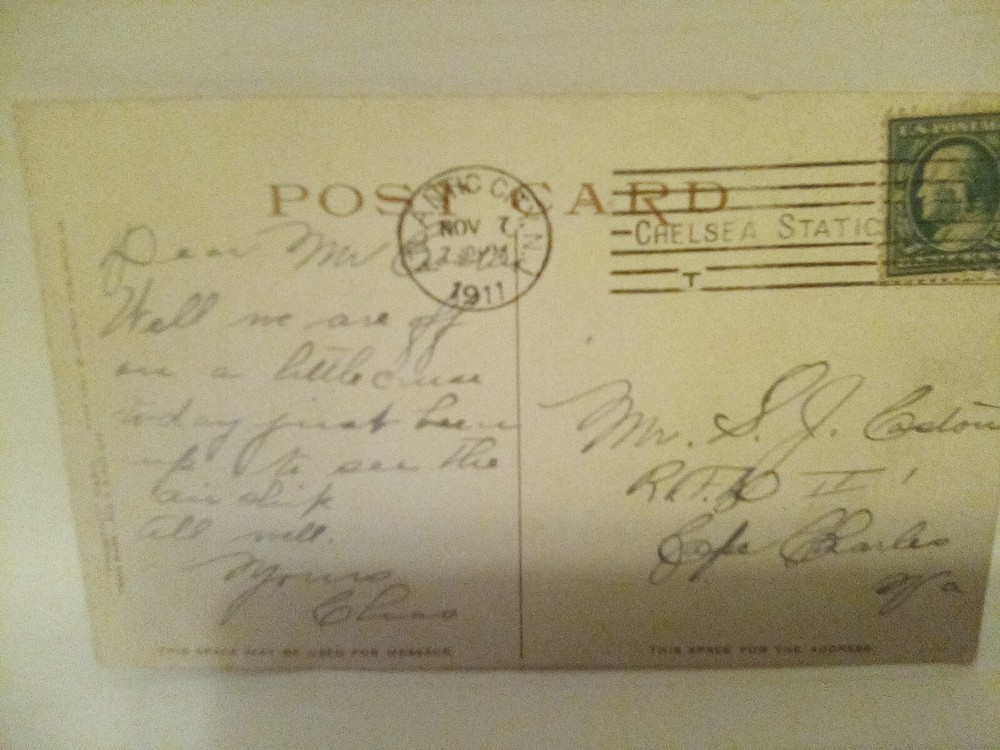 POST CARD
ATLANTIC CITY, N.J.
NOV 7
1911
CHELSEA STATIC
T
U.S. POSTAG
Dear Mr
Well we are off
on a little cruise
today just been
up to see the
air ship
All well.
Yours
Chas
Mr. S. J. Costin
R.F.D
Cape Charles
Va
THIS SPACE MAY BE USED FOR MESSAGE
THIS SPACE FOR THE ADDRESS